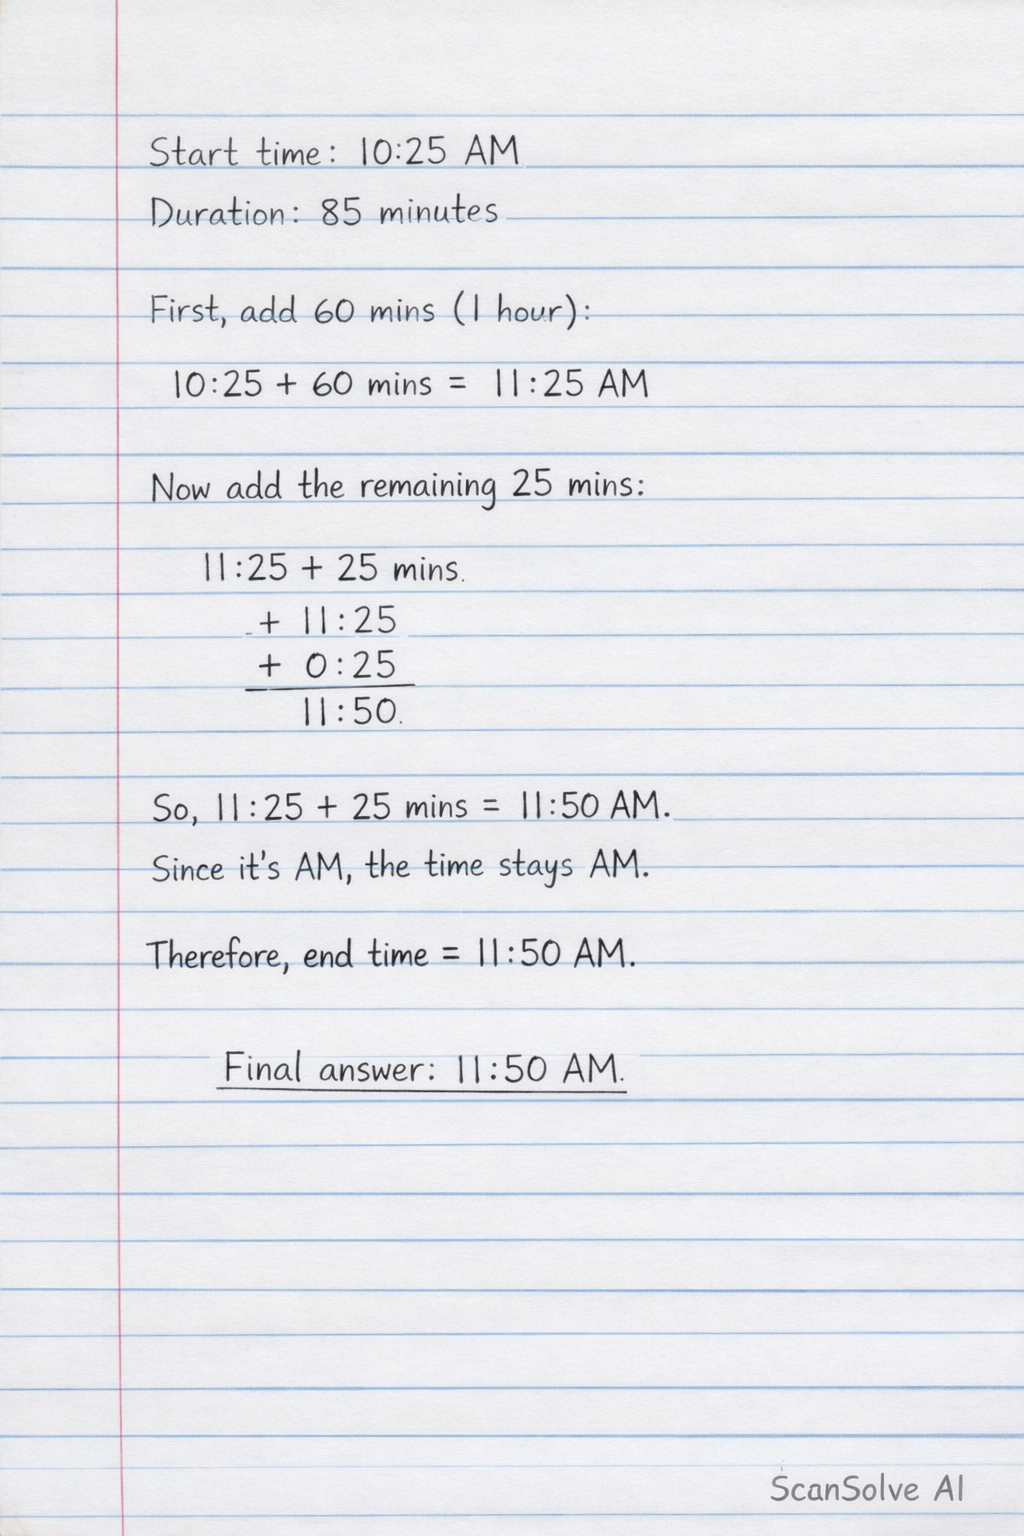 Start time: 10:25 AM
Duration: 85 minutes
First, add 60 mins (1 hour):
10:25 + 60 mins = 11:25 AM
Now add the remaining 25 mins:
11:25 + 25 mins.
+ 11:25
+ 0:25
11:50.
So, 11:25 + 25 mins = 11:50 AM.
Since it's AM, the time stays AM.
Therefore, end time = 11:50 AM.
Final answer: 11:50 AM.
ScanSolve AI